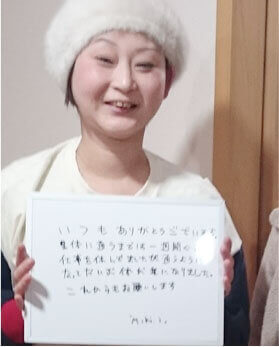 いつもありがとうございます
整体に通うまでは一週間の
仕事を休んでましたが通うように
なってだいぶ体が楽になりました。
これからもお願いします